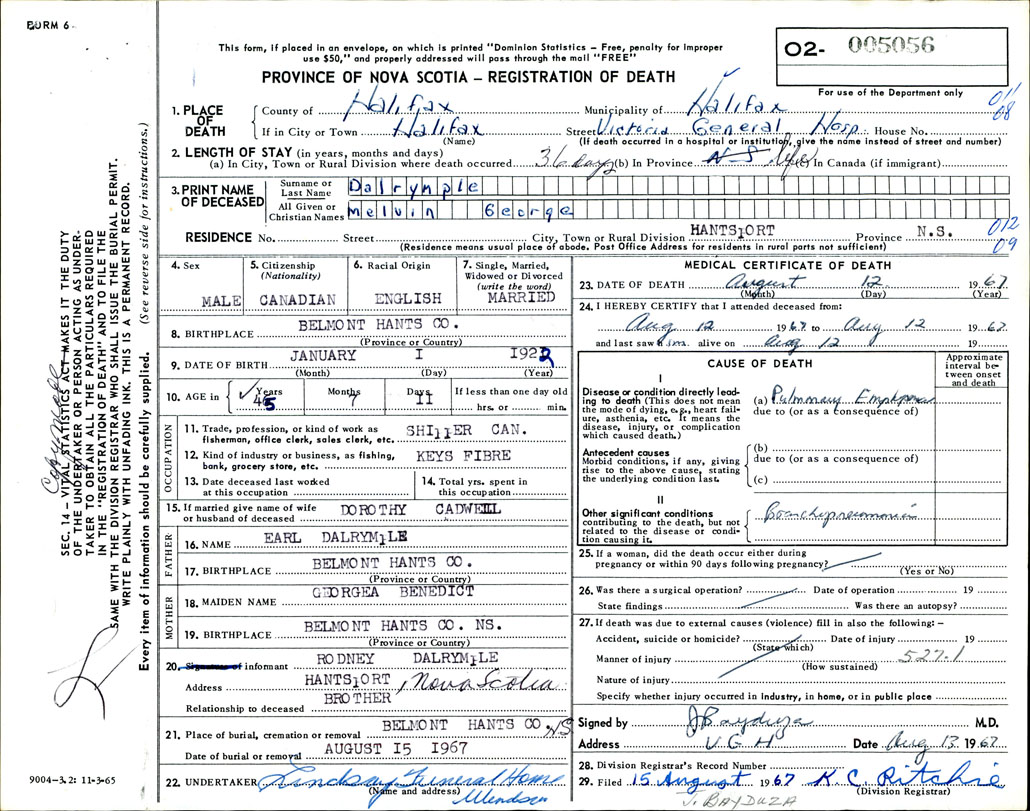 FORM 6
This form, if placed in an envelope, on which is printed "Dominion Statistics – Free, penalty for improper
use $50," and properly addressed will pass through the mail "FREE"
PROVINCE OF NOVA SCOTIA – REGISTRATION OF DEATH
O2- 005056
For use of the Department only
1. PLACE OF DEATH
County of Halifax Municipality of Halifax
011
08
If in City or Town Halifax Street Victoria General Hosp. House No.
(Name) (If death occurred in a hospital or institution, give the name instead of street and number)
2. LENGTH OF STAY (in years, months and days)
(a) In City, Town or Rural Division where death occurred 36 days (b) In Province N.S. life (c) In Canada (if immigrant)
3. PRINT NAME OF DECEASED
Surname or Last Name Dalrymple
All Given or Christian Names Melvin George
RESIDENCE No. Street City, Town or Rural Division HANTS1ORT Province N.S.
012
09
(Residence means usual place of abode. Post Office Address for residents in rural parts not sufficient)
4. Sex MALE
5. Citizenship (Nationality) CANADIAN
6. Racial Origin ENGLISH
7. Single, Married, Widowed or Divorced (write the word) MARRIED
8. BIRTHPLACE BELMONT HANTS CO.
(Province or Country)
9. DATE OF BIRTH JANUARY I 1922
(Month) (Day) (Year)
10. AGE in Years 45 Months 7 Days 11 If less than one day old hrs. or min.
OCCUPATION
11. Trade, profession, or kind of work as fisherman, office clerk, sales clerk, etc. SHI11ER CAN.
12. Kind of industry or business, as fishing, bank, grocery store, etc. KEYS FIBRE
13. Date deceased last worked at this occupation
14. Total yrs. spent in this occupation
15. If married give name of wife or husband of deceased DOROTHY CADWELL
FATHER
16. NAME EARL DALRYM1LE
17. BIRTHPLACE BELMONT HANTS CO.
(Province or Country)
MOTHER
18. MAIDEN NAME GEORGEA BENEDICT
19. BIRTHPLACE BELMONT HANTS CO. NS.
(Province or Country)
20. Signature of informant RODNEY DALRYM1LE
Address HANTS1ORT, Nova Scotia
Relationship to deceased BROTHER
21. Place of burial, cremation or removal BELMONT HANTS CO. NS
Date of burial or removal AUGUST I5 I967
22. UNDERTAKER Lindsay Funeral Home
(Name and address)
MEDICAL CERTIFICATE OF DEATH
23. DATE OF DEATH August 12 1967
(Month) (Day) (Year)
24. I HEREBY CERTIFY that I attended deceased from:
Aug 12 1967 to Aug 12 1967
and last saw him alive on Aug 12 19
CAUSE OF DEATH
Approximate interval between onset and death
I
Disease or condition directly leading to death (This does not mean the mode of dying, e.g., heart failure, asthenia, etc. It means the disease, injury, or complication which caused death.)
(a) Pulmonary Emphysema
due to (or as a consequence of)
Antecedent causes
Morbid conditions, if any, giving rise to the above cause, stating the underlying condition last.
(b)
due to (or as a consequence of)
(c)
II
Other significant conditions contributing to the death, but not related to the disease or condition causing it.
Bronchopneumonia
25. If a woman, did the death occur either during pregnancy or within 90 days following pregnancy?
(Yes or No)
26. Was there a surgical operation? Date of operation 19
State findings Was there an autopsy?
27. If death was due to external causes (violence) fill in also the following: –
Accident, suicide or homicide? Date of injury 19
(State which)
Manner of injury 527.1
(How sustained)
Nature of injury
Specify whether injury occurred in industry, in home, or in public place
Signed by J Bayduza M.D.
Address V G H Date Aug 13 1967
28. Division Registrar's Record Number
29. Filed 15 August 1967 K. C. Ritchie
(Division Registrar)
J. BAYDUZA
SEC. 14 – VITAL STATISTICS ACT MAKES IT THE DUTY
OF THE UNDERTAKER OR PERSON ACTING AS UNDER-
TAKER TO OBTAIN ALL THE PARTICULARS REQUIRED
IN THE "REGISTRATION OF DEATH" AND TO FILE THE
SAME WITH THE DIVISION REGISTRAR WHO SHALL ISSUE THE BURIAL PERMIT.
WRITE PLAINLY WITH UNFADING INK. THIS IS A PERMANENT RECORD.
Every item of information should be carefully supplied. (See reverse side for instructions.)
9004-3.2: 11-3-65